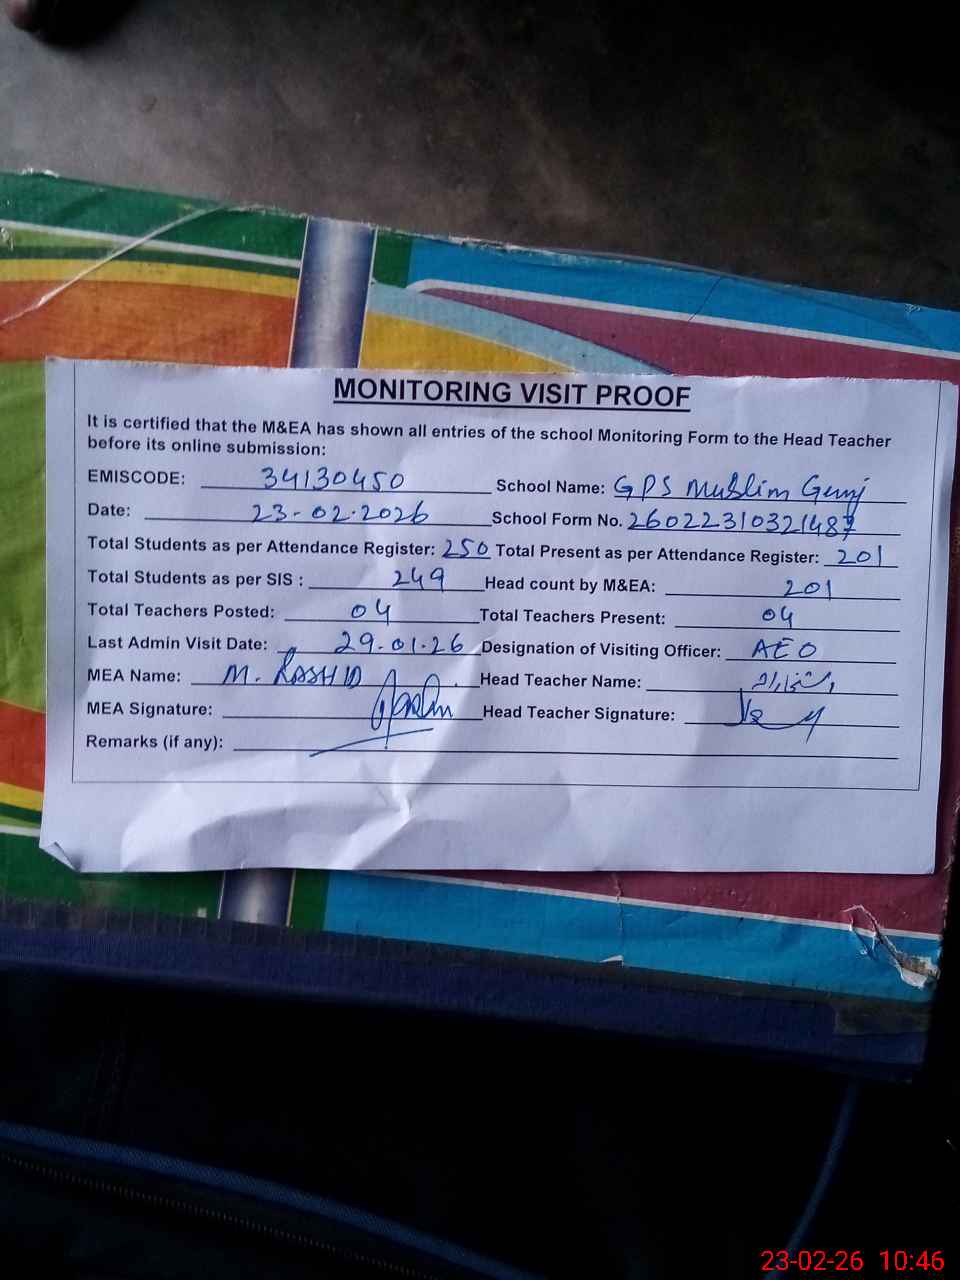 MONITORING VISIT PROOF
It is certified that the M&EA has shown all entries of the school Monitoring Form to the Head Teacher
before its online submission:
EMISCODE: 34130450 School Name: GPS Muslim Gunj
Date: 23-02-2026 School Form No. 26022310321487
Total Students as per Attendance Register: 250 Total Present as per Attendance Register: 201
Total Students as per SIS : 249 Head count by M&EA: 201
Total Teachers Posted: 04 Total Teachers Present: 04
Last Admin Visit Date: 29-01-26 Designation of Visiting Officer: AEO
MEA Name: M. RASHID Head Teacher Name:
MEA Signature: Head Teacher Signature:
Remarks (if any):
23-02-26 10:46